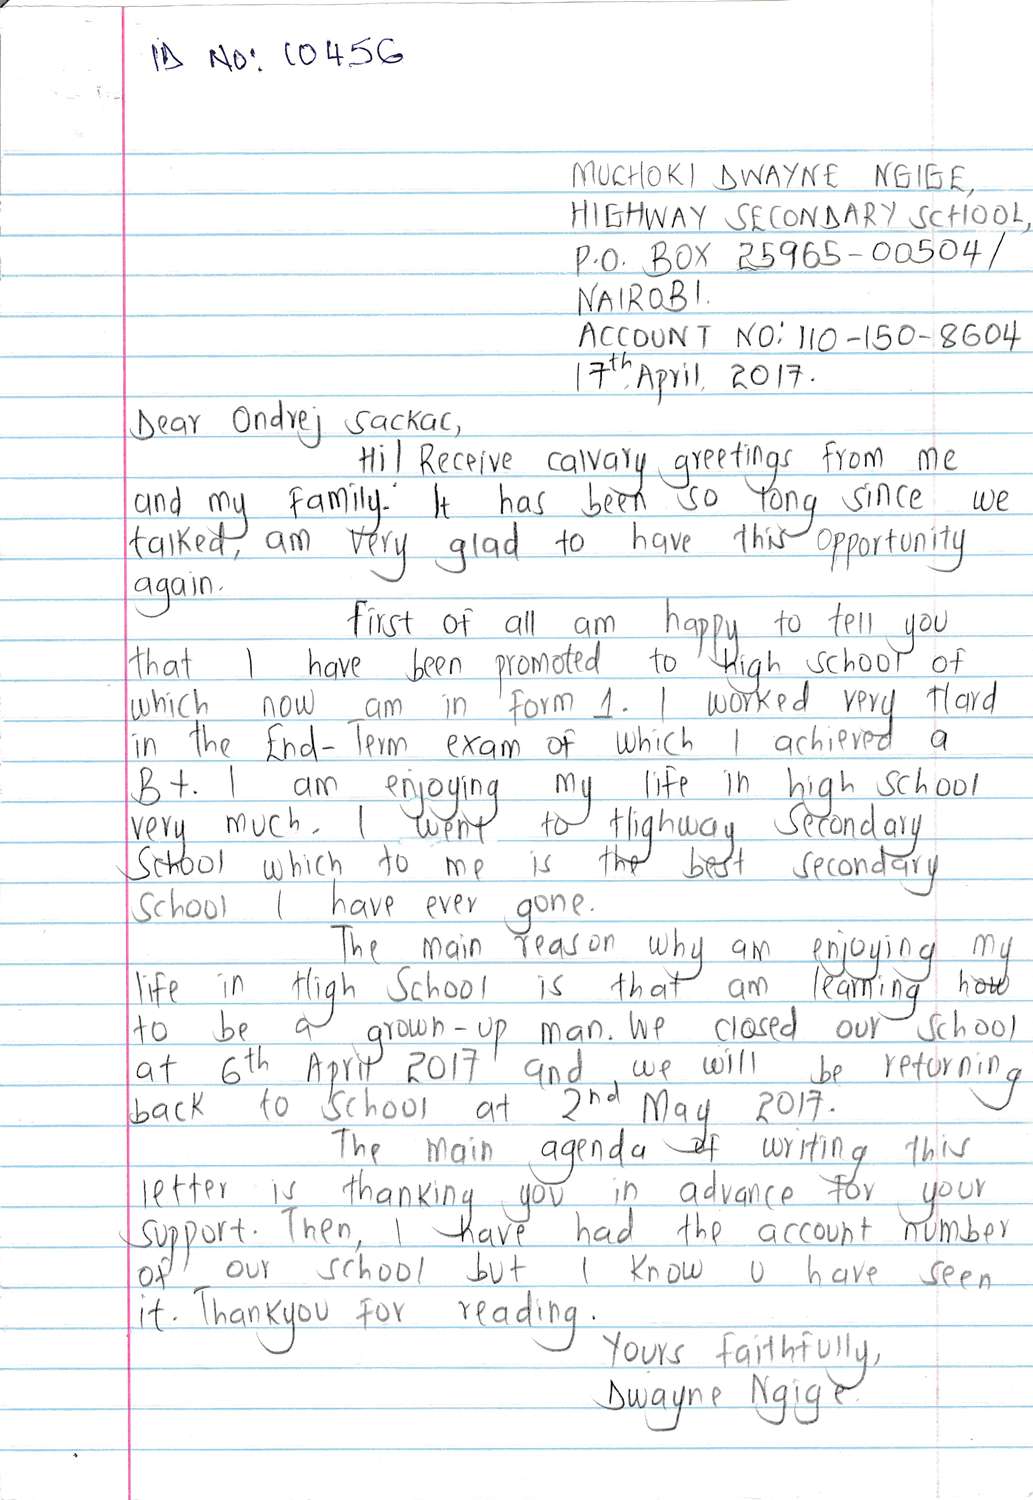 ID No: 10456
MUCHOKI DWAYNE NGIGE,
HIGHWAY SECONDARY SCHOOL,
P.O. BOX 25965-00504/
NAIROBI.
ACCOUNT NO: 110-150-8604
17th April, 2017.
Dear Ondrej Sackac,
Hi! Receive calvary greetings from me
and my family. It has been so long since we
talked, am very glad to have this opportunity
again.
First of all am happy to tell you
that I have been promoted to high school of
which now am in form 1. I worked very Hard
in the End-Term exam of which I achieved a
B+. I am enjoying my life in high school
very much. I went to Highway Secondary
School which to me is the best secondary
School I have ever gone.
The main reason why am enjoying my
life in High School is that am learning how
to be a grown-up man. We closed our school
at 6th April 2017 and we will be returning
back to School at 2nd May 2017.
The main agenda of writing this
letter is thanking you in advance for your
support. Then, I have had the account number
of our school but I know u have seen
it. Thankyou for reading.
Yours faithfully,
Dwayne Ngige